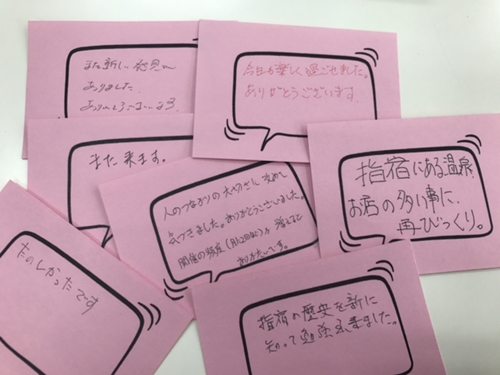 また新しい発見が
ありました。
ありがとうございます
今日も楽しく過ごせました。
ありがとうございます。
また来ます。
人のつながりの大切さに改めて
気づきました。ありがとうございました。
開催の頻度(月1,2回など)が増えると
ありがたいです。
指宿にある温泉、
お店の多い事に、
再びっくり。
たのしかったです
指宿の歴史を新に
知って勉強出来ました。